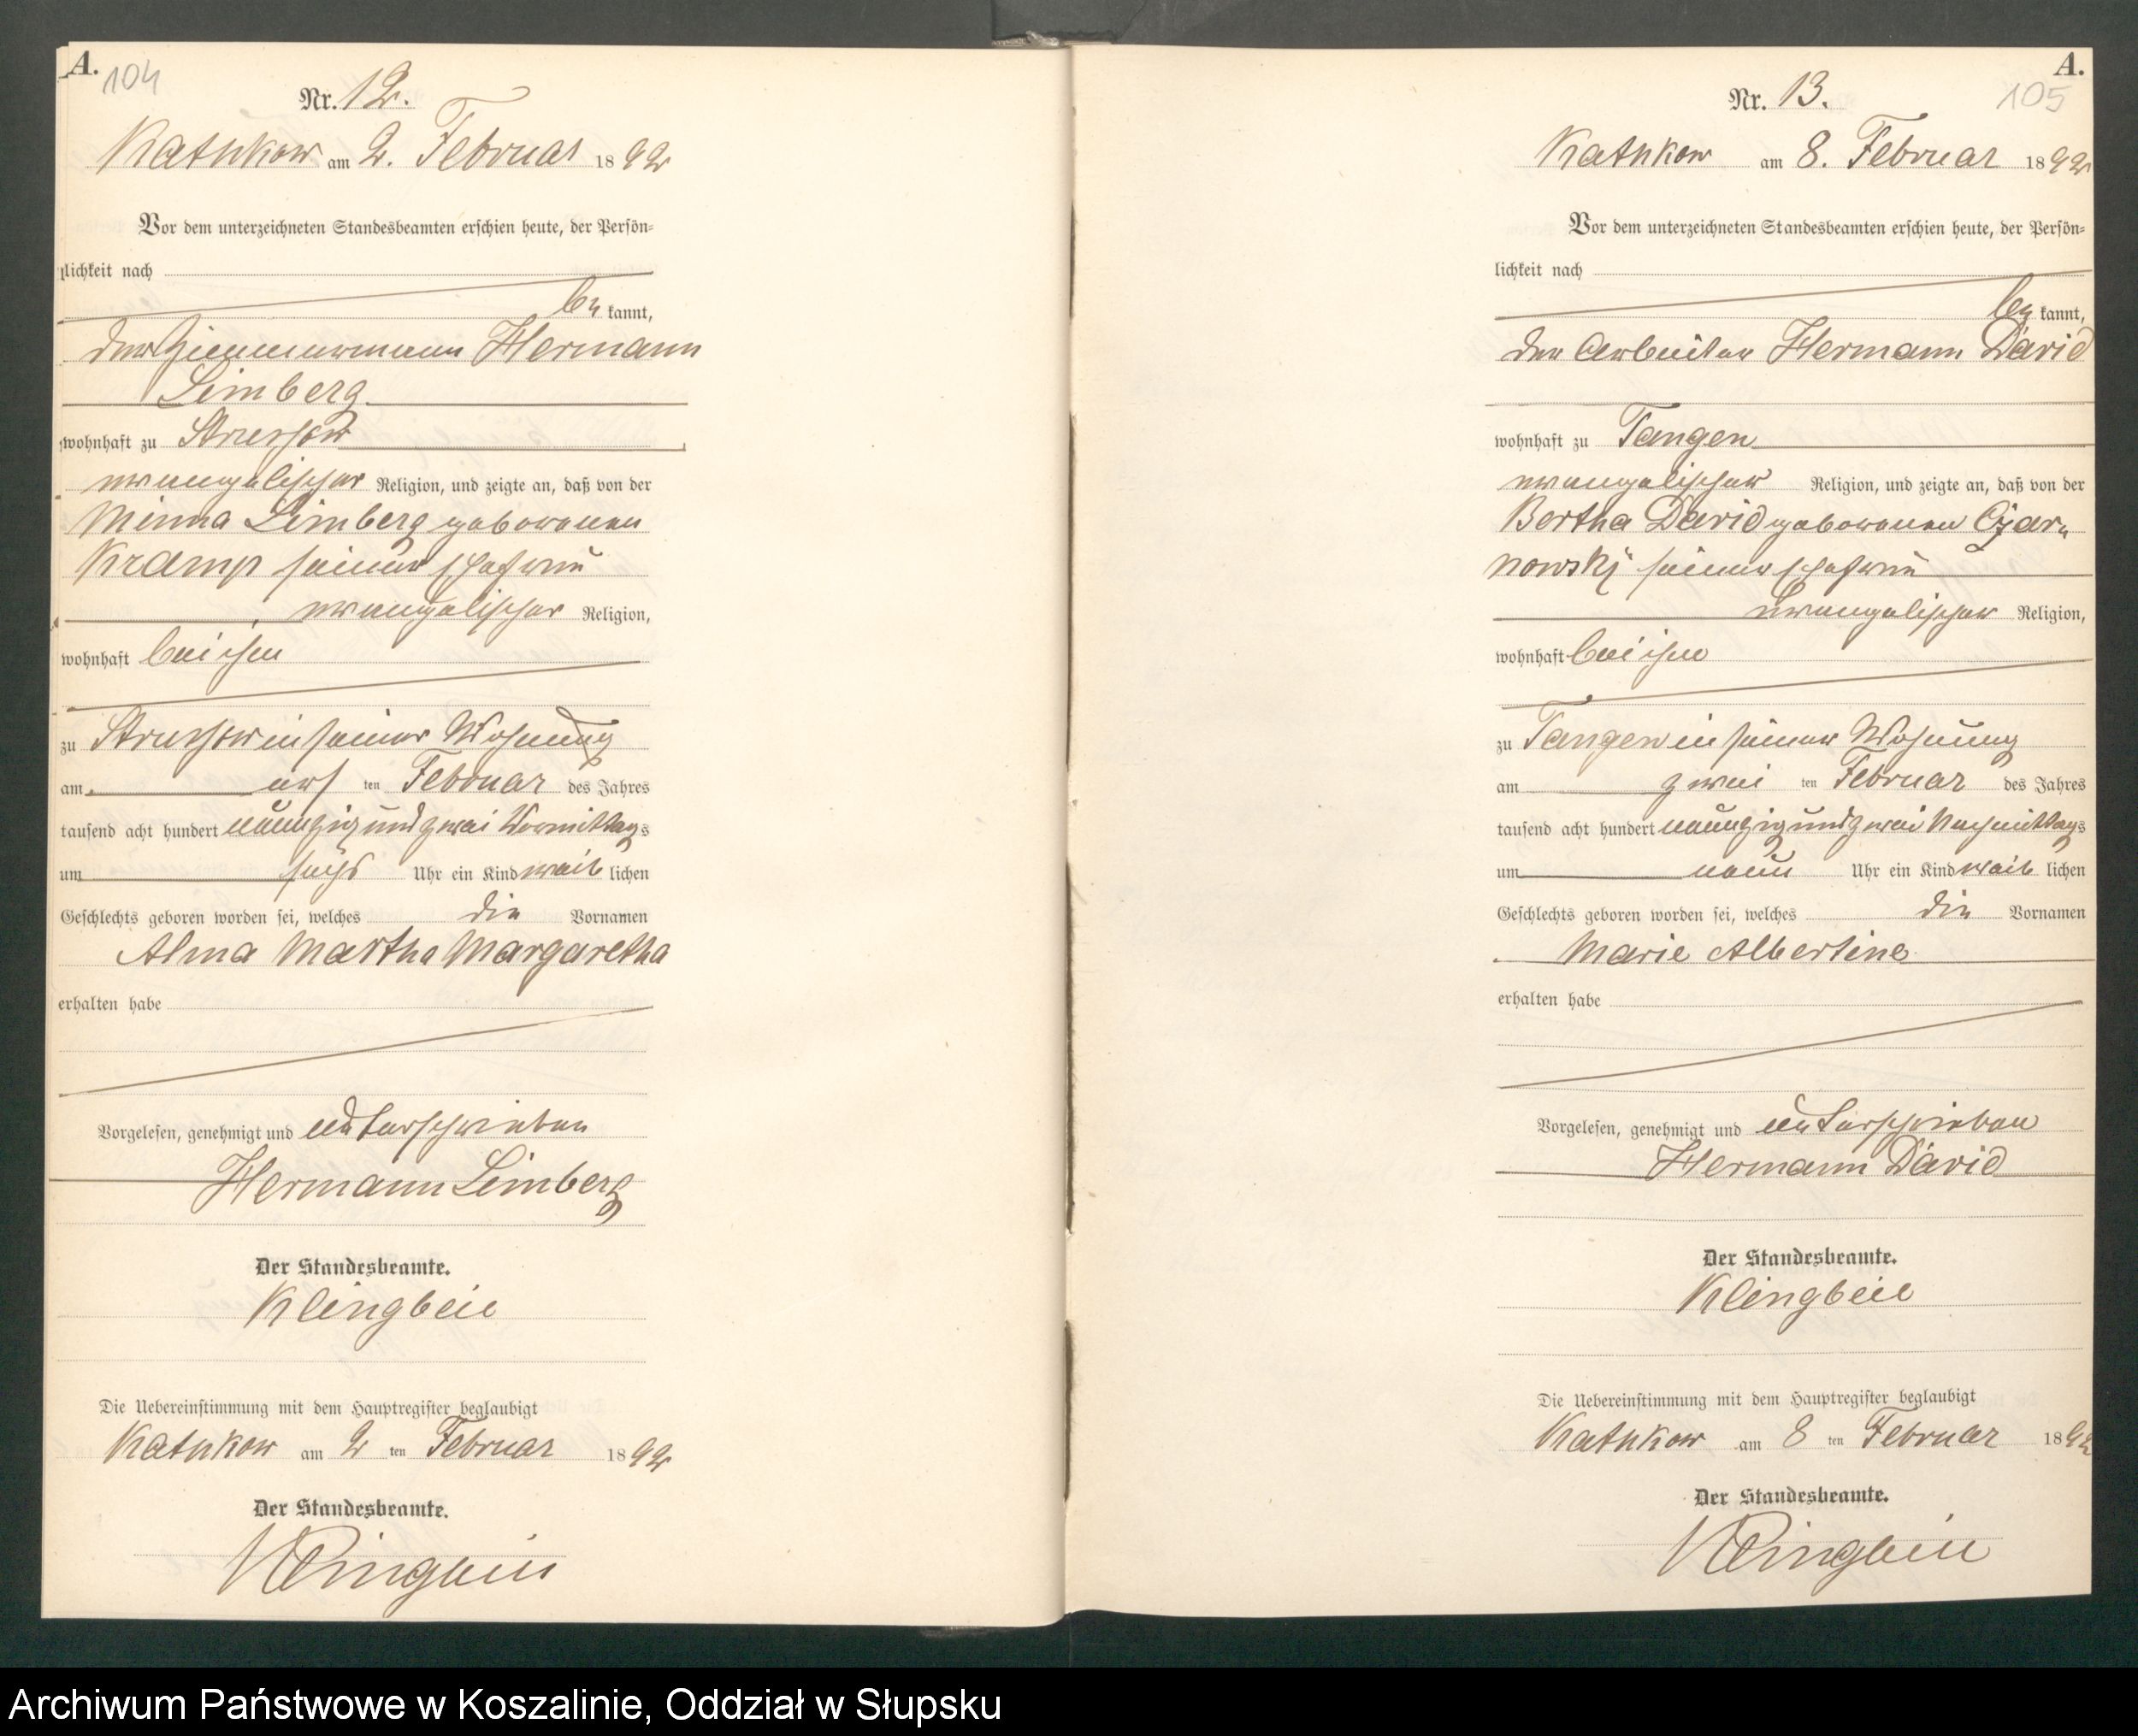 A.
104
Nr. 12.
Kathkow am 2. Februar 1892
Vor dem unterzeichneten Standesbeamten erschien heute, der Persön-
lichkeit nach
be kannt,
der Zimmermann Hermann
Limberg
wohnhaft zu Strussow
evangelischer Religion, und zeigte an, daß von der
Minna Limberg geborenen
Kramp seiner Ehefrau
evangelischer Religion,
wohnhaft bei ihm
zu Strussow in seiner Wohnung
am ersten Februar des Jahres
tausend acht hundert neunzig und zwei Vormittags
um sechs Uhr ein Kind weiblichen
Geschlechts geboren worden sei, welches die Vornamen
Alma Martha Margaretha
erhalten habe
Vorgelesen, genehmigt und unterschrieben
Hermann Limberg
Der Standesbeamte.
Klingbeil
Die Uebereinstimmung mit dem Hauptregister beglaubigt
Kathkow am 2 ten Februar 1892
Der Standesbeamte.
Klingbeil
A.
105
Nr. 13.
Kathkow am 8. Februar 1892
Vor dem unterzeichneten Standesbeamten erschien heute, der Persön-
lichkeit nach
be kannt,
der Arbeiter Hermann David
wohnhaft zu Tangen
evangelischer Religion, und zeigte an, daß von der
Bertha David geborenen Czar-
nowski seiner Ehefrau
evangelischer Religion,
wohnhaft bei ihm
zu Tangen in seiner Wohnung
am zwei ten Februar des Jahres
tausend acht hundert neunzig und zwei Nachmittags
um neun Uhr ein Kind weiblichen
Geschlechts geboren worden sei, welches die Vornamen
Marie Albertine
erhalten habe
Vorgelesen, genehmigt und unterschrieben
Hermann David
Der Standesbeamte.
Klingbeil
Die Uebereinstimmung mit dem Hauptregister beglaubigt
Kathkow am 8 ten Februar 1892
Der Standesbeamte.
Klingbeil
Archiwum Państwowe w Koszalinie, Oddział w Słupsku